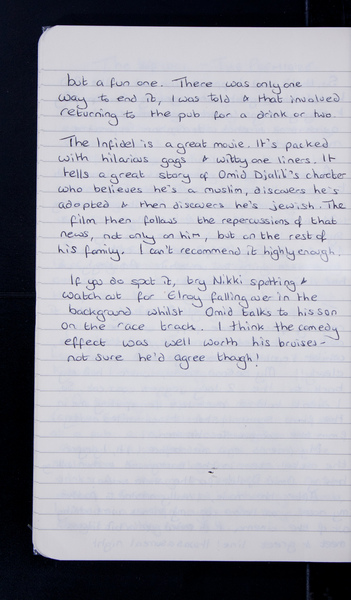 but a fun one. There was only one
way to end it, I was told & that involved
returning to the pub for a drink or two.
The Infidel is a great movie. It's packed
with hilarious gags & witty one liners. It
tells a great story of Omid Djalili's charcter
who believes he's a muslim, discovers he's
adopted & then discovers he's jewish. The
film then follows the repercussions of that
news, not only on him, but on the rest of
his family. I can't recommend it highly enough.
If you do spot it, try Nikki spotting &
watch out for Elroy falling over in the
background whilst Omid talks to his son
on the race track. I think the comedy
effect was well worth his bruises -
not sure he'd agree though!